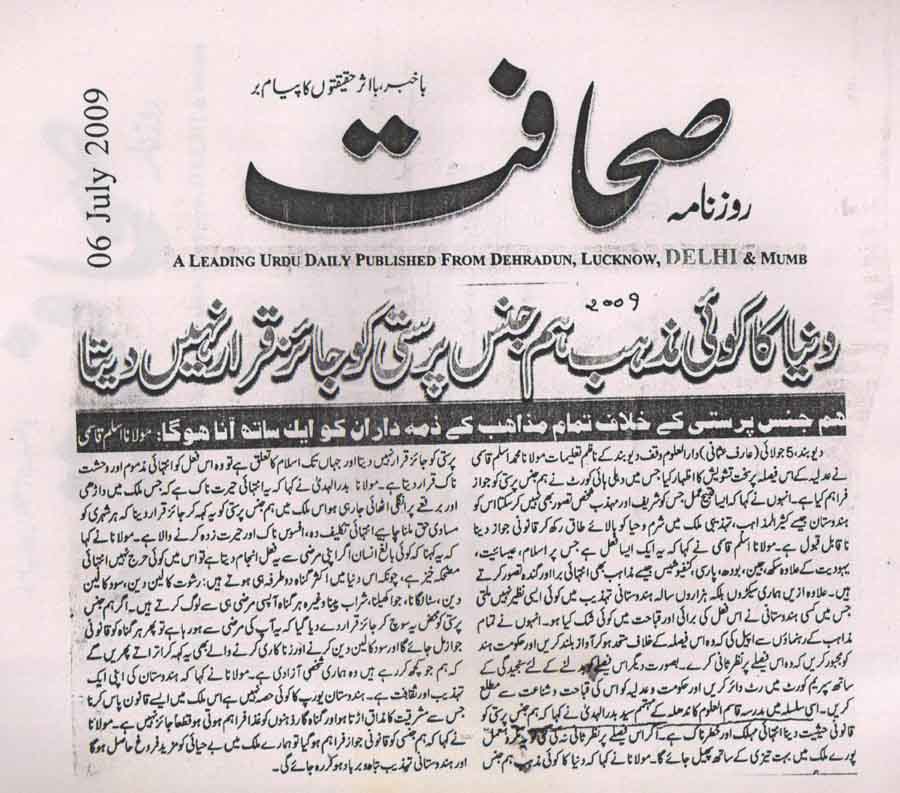 06 July 2009
باخبر، بااثر حقیقتوں کا پیام بر
صحافت
روزنامہ
A LEADING URDU DAILY PUBLISHED FROM DEHRADUN, LUCKNOW, DELHI & MUMB
۲۰۰۹
دنیا کا کوئی مذہب ہم جنس پرستی کو جائز قرار نہیں دیتا
ہم جنس پرستی کے خلاف تمام مذاہب کے ذمہ داران کو ایک ساتھ آنا ہوگا: مولانا اسلم قاسمی
دیوبند، 5 جولائی (عارف عثمانی) دارالعلوم وقف دیوبند کے ناظم تعلیمات مولانا محمد اسلم قاسمی
نے عدلیہ کے اس فیصلہ پر سخت تشویش کا اظہار کیا جس میں دہلی ہائی کورٹ نے ہم جنس پرستی کو جواز
فراہم کیا ہے۔ انہوں نے کہا کہ ایسا قبیح عمل جس کو شریف اور مہذب شخص تصور بھی نہیں کرسکتا اس کو
ہندوستان جیسے کثیر المذاہب، تہذیبی ملک میں شرم و حیا کو بالائے طاق رکھ کر قانونی جواز دینا
نا قابل قبول ہے۔ مولانا اسلم قاسمی نے کہا کہ یہ ایک ایسا فعل ہے جس پر اسلام، عیسائیت،
یہودیت کے علاوہ سکھ، جین، بودھ، پارسی، کنفیوشیس جیسے مذاہب بھی انتہائی برا اور گندہ تصور کرتے
ہیں۔ علاوہ ازیں ہماری سیکڑوں بلکہ ہزاروں سالہ ہندوستانی تہذیب میں کوئی ایسی نظیر نہیں ملتی
جس میں کسی ہندوستانی نے اس فعل کی برائی اور قباحت میں کوئی شک کیا ہو۔ انہوں نے تمام
مذاہب کے رہنماؤں سے اپیل کی کہ وہ اس فیصلہ کے خلاف متحد ہوکر آواز بلند کریں اور حکومت ہند
کو مجبور کریں کہ وہ اس فیصلے پر نظر ثانی کرے۔ بصورت دیگر اس فیصلے کو بدلنے کے لئے سنجیدگی کے
ساتھ سپریم کورٹ میں رٹ دائر کریں اور حکومت و عدلیہ کو اس کی قباحت و شناعت سے مطلع
کریں۔ اسی سلسلہ میں مدرسہ قاسم العلوم کاندھلہ کے مہتمم سید بدر الہدیٰ نے کہا کہ ہم جنس پرستی کو
قانونی حیثیت دینا انتہائی مہلک اور خطرناک ہے۔ اگر اس فیصلے پر نظر ثانی نہ کی گئی
پورے ملک میں بہت تیزی کے ساتھ پھیل جائے گا۔ مولانا نے کہا کہ دنیا کا کوئی مذہب ہم جنس
پرستی کو جائز قرار نہیں دیتا اور جہاں تک اسلام کا تعلق ہے تو وہ اس فعل کو انتہائی مذموم اور وحشت
ناک قرار دیتا ہے۔ مولانا بدر الہدیٰ نے کہا کہ یہ انتہائی حیرت ناک ہے کہ جس ملک میں داڑھی
اور برقعے پر انگلی اٹھائی جارہی ہو اس ملک میں ہم جنس پرستی کو یہ کہہ کر جائز قرار دینا کہ ہر شہری کو
مساوی حق ملنا چاہیے انتہائی تکلیف دہ، افسوس ناک اور حیرت زدہ کرنے والا ہے۔ مولانا نے کہا
کہ یہ کہنا کہ کوئی بالغ انسان اگر اپنی مرضی سے یہ فعل انجام دیتا ہے تو اس میں کوئی حرج نہیں انتہائی
مضحکہ خیز ہے، چونکہ اس دنیا میں اکثر گناہ دو طرفہ ہی ہوتے ہیں: رشوت کا لین دین، سود کا لین
دین، سٹا لگانا، جوا کھیلنا، شراب پینا وغیرہ ہر گناہ آپسی مرضی ہی سے لوگ کرتے ہیں۔ اگر ہم جنس
پرستی کو محض یہ سوچ کر جائز قرار دے دیا گیا کہ یہ آپ کی مرضی سے ہو رہا ہے تو پھر ہر گناہ کو قانونی
جواز مل جائے گا اور سود کا لین دین کرنے اور زنا کاری کرنے والے بھی یہ کہہ کر اتراتے پھریں گے
کہ ہم جو کچھ کر رہے ہیں وہ ہماری شخصی آزادی ہے۔ مولانا نے کہا کہ ہندوستان کی اپنی ایک
تہذیب اور ثقافت ہے۔ ہندوستان یورپ کا کوئی حصہ نہیں ہے اس ملک میں ایسے قانون پاس کرنا
جس سے مشرقیت کا مذاق اڑتا ہو اور گناہ گار ذہنوں کو غذا فراہم ہوتی ہو قطعاً جائز نہیں ہے۔ مولانا
نے کہا کہ ہم جنسی کو قانونی جواز فراہم ہوگیا تو ہمارے ملک میں بے حیائی کو مزید فروغ حاصل ہوگا
اور ہندوستانی تہذیب تباہ و برباد ہوکر رہ جائے گی۔